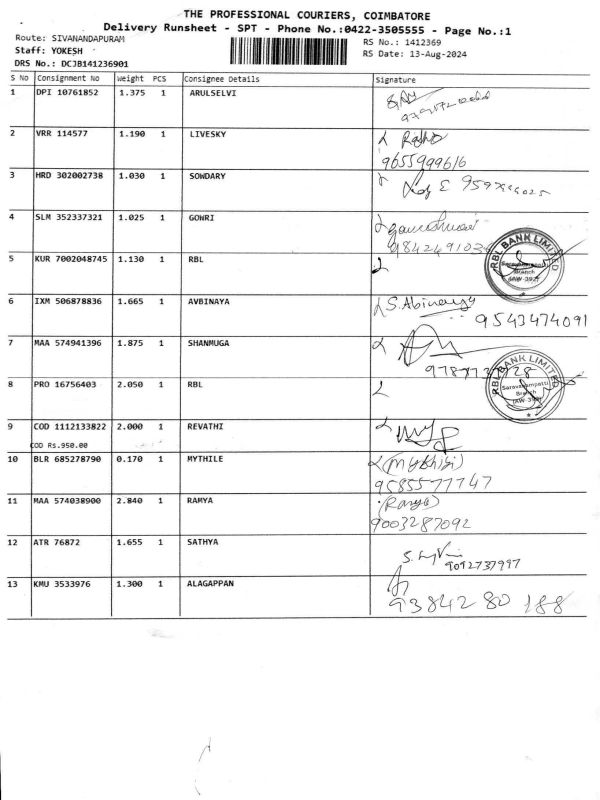 THE PROFESSIONAL COURIERS, COIMBATORE
Delivery Runsheet - SPT - Phone No.:0422-3505555 - Page No.:1
Route: SIVANANDAPURAM
RS No.: 1412369
Staff: YOKESH
RS Date: 13-Aug-2024
DRS No.: DCJB141236901
S No Consignment No Weight PCS Consignee Details Signature
1 DPI 10761852 1.375 1 ARULSELVI
2 VRR 114577 1.190 1 LIVESKY
9655999616
3 HRD 302002738 1.030 1 SOWDARY
4 SLM 352337321 1.025 1 GOWRI
5 KUR 7002048745 1.130 1 RBL
RBL BANK LIMITED
Branch
6 IXM 506878836 1.665 1 AVBINAYA
S. Abinaya
9543474091
7 MAA 574941396 1.875 1 SHANMUGA
8 PRO 16756403 2.050 1 RBL
RBL BANK LIMITED
Saravanampatti
Branch
9 COD 1112133822 2.000 1 REVATHI
COD Rs.950.00
10 BLR 685278790 0.170 1 MYTHILE
9585577747
11 MAA 574038900 2.840 1 RAMYA
(Ramya)
9003287092
12 ATR 76872 1.655 1 SATHYA
9092737997
13 KMU 3533976 1.300 1 ALAGAPPAN
93842 80 188